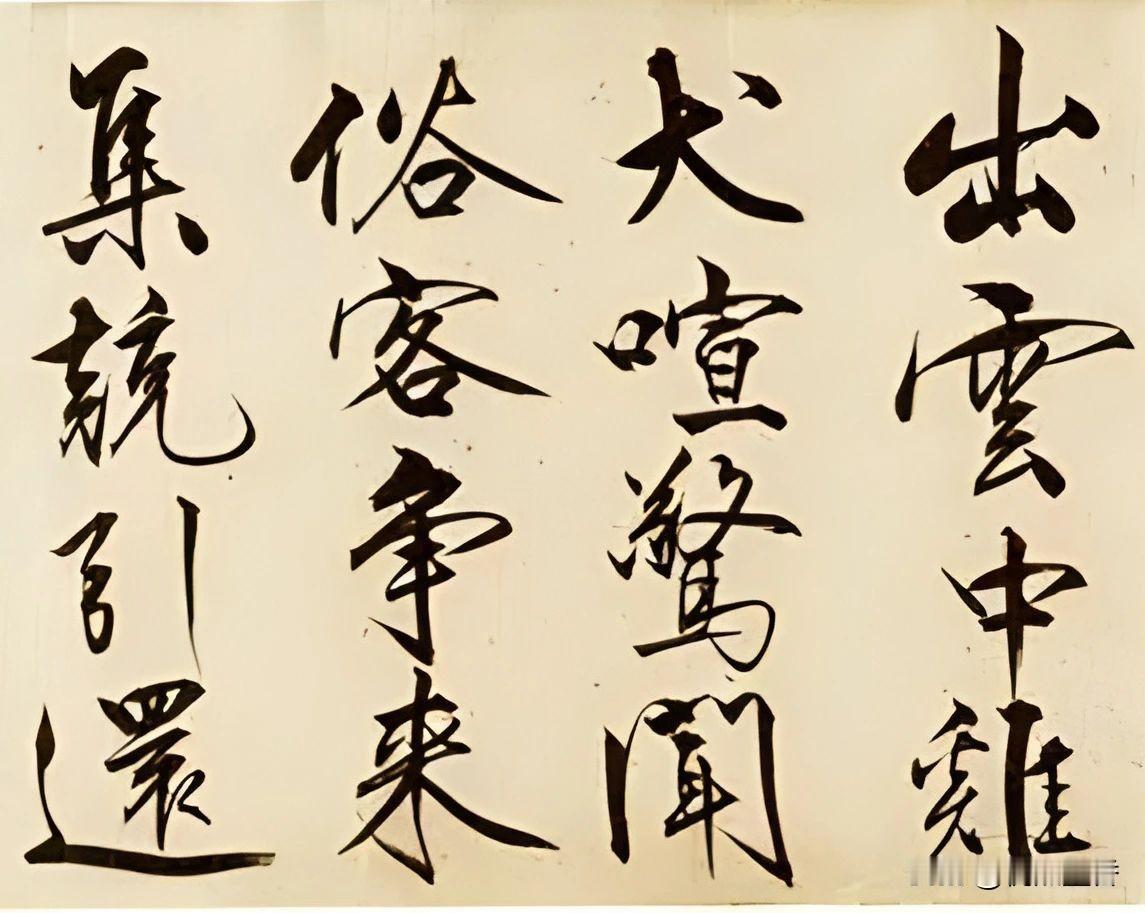 出雲中雞
犬喧驚聞
俗客争来
集競引還